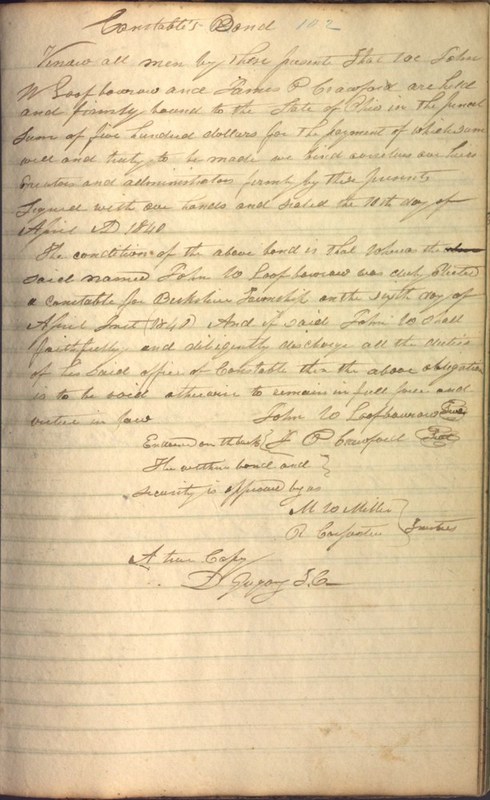 Constable's Bond 102
Know all men by these presents that we John
W Loofbourow and James P Crawford are held
and firmly bound to the State of Ohio in the penal
sum of five hundred dollars for the payment of which sum
well and truly to be made we bind ourselves our heirs
and administrators firmly by these presents
signed with our hands and sealed the 10th day of
April AD 1840
The condition of the above bond is that whereas the
said named John W Loofbourow was duly Elected
a constable for Berkshire Township on the sixth day of
April Inst 1840 And if said John W shall
faithfully and diligently discharge all the duties
of his said office of Constable then the above obligation
is to be void otherwise to remain in full force and
virtue in law John W Loofbourow Seal
Endorsed on the back J P Crawford Seal
The within bond and
security is approved by us
M W Miller
R Carpenter Trustees
A true Copy
D Gregory T.C.